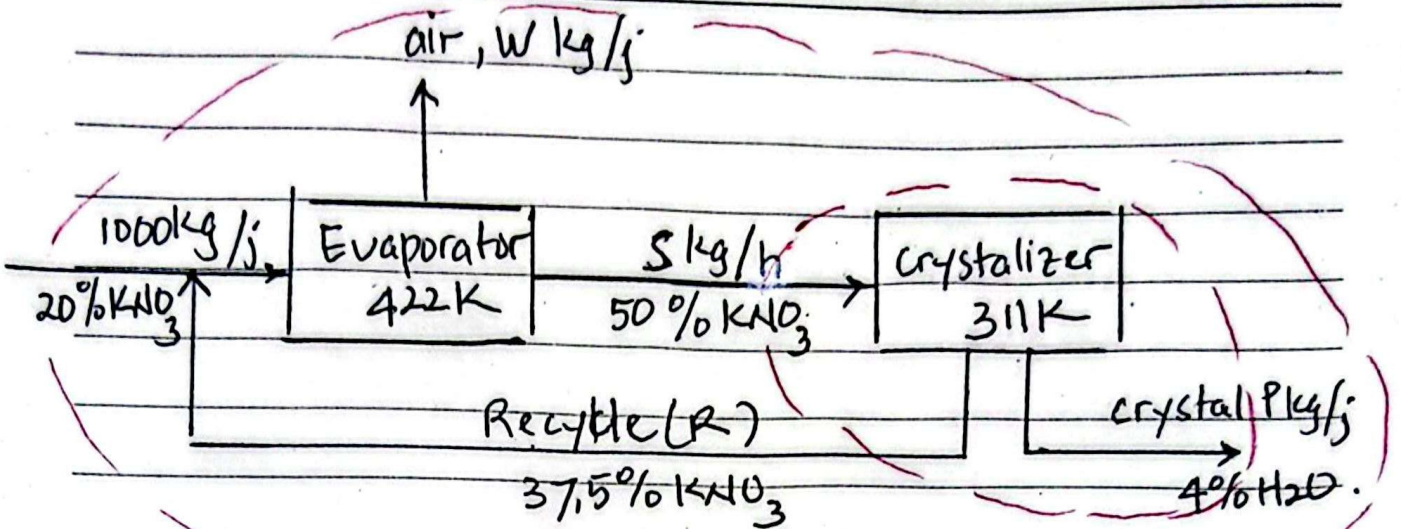 air, W kg/j
1000kg/j
20% KNO3
Evaporator
422K
S kg/h
50% KNO3
crystalizer
311K
Recykle (R)
37,5% KNO3
crystal P kg/j
4% H2O.